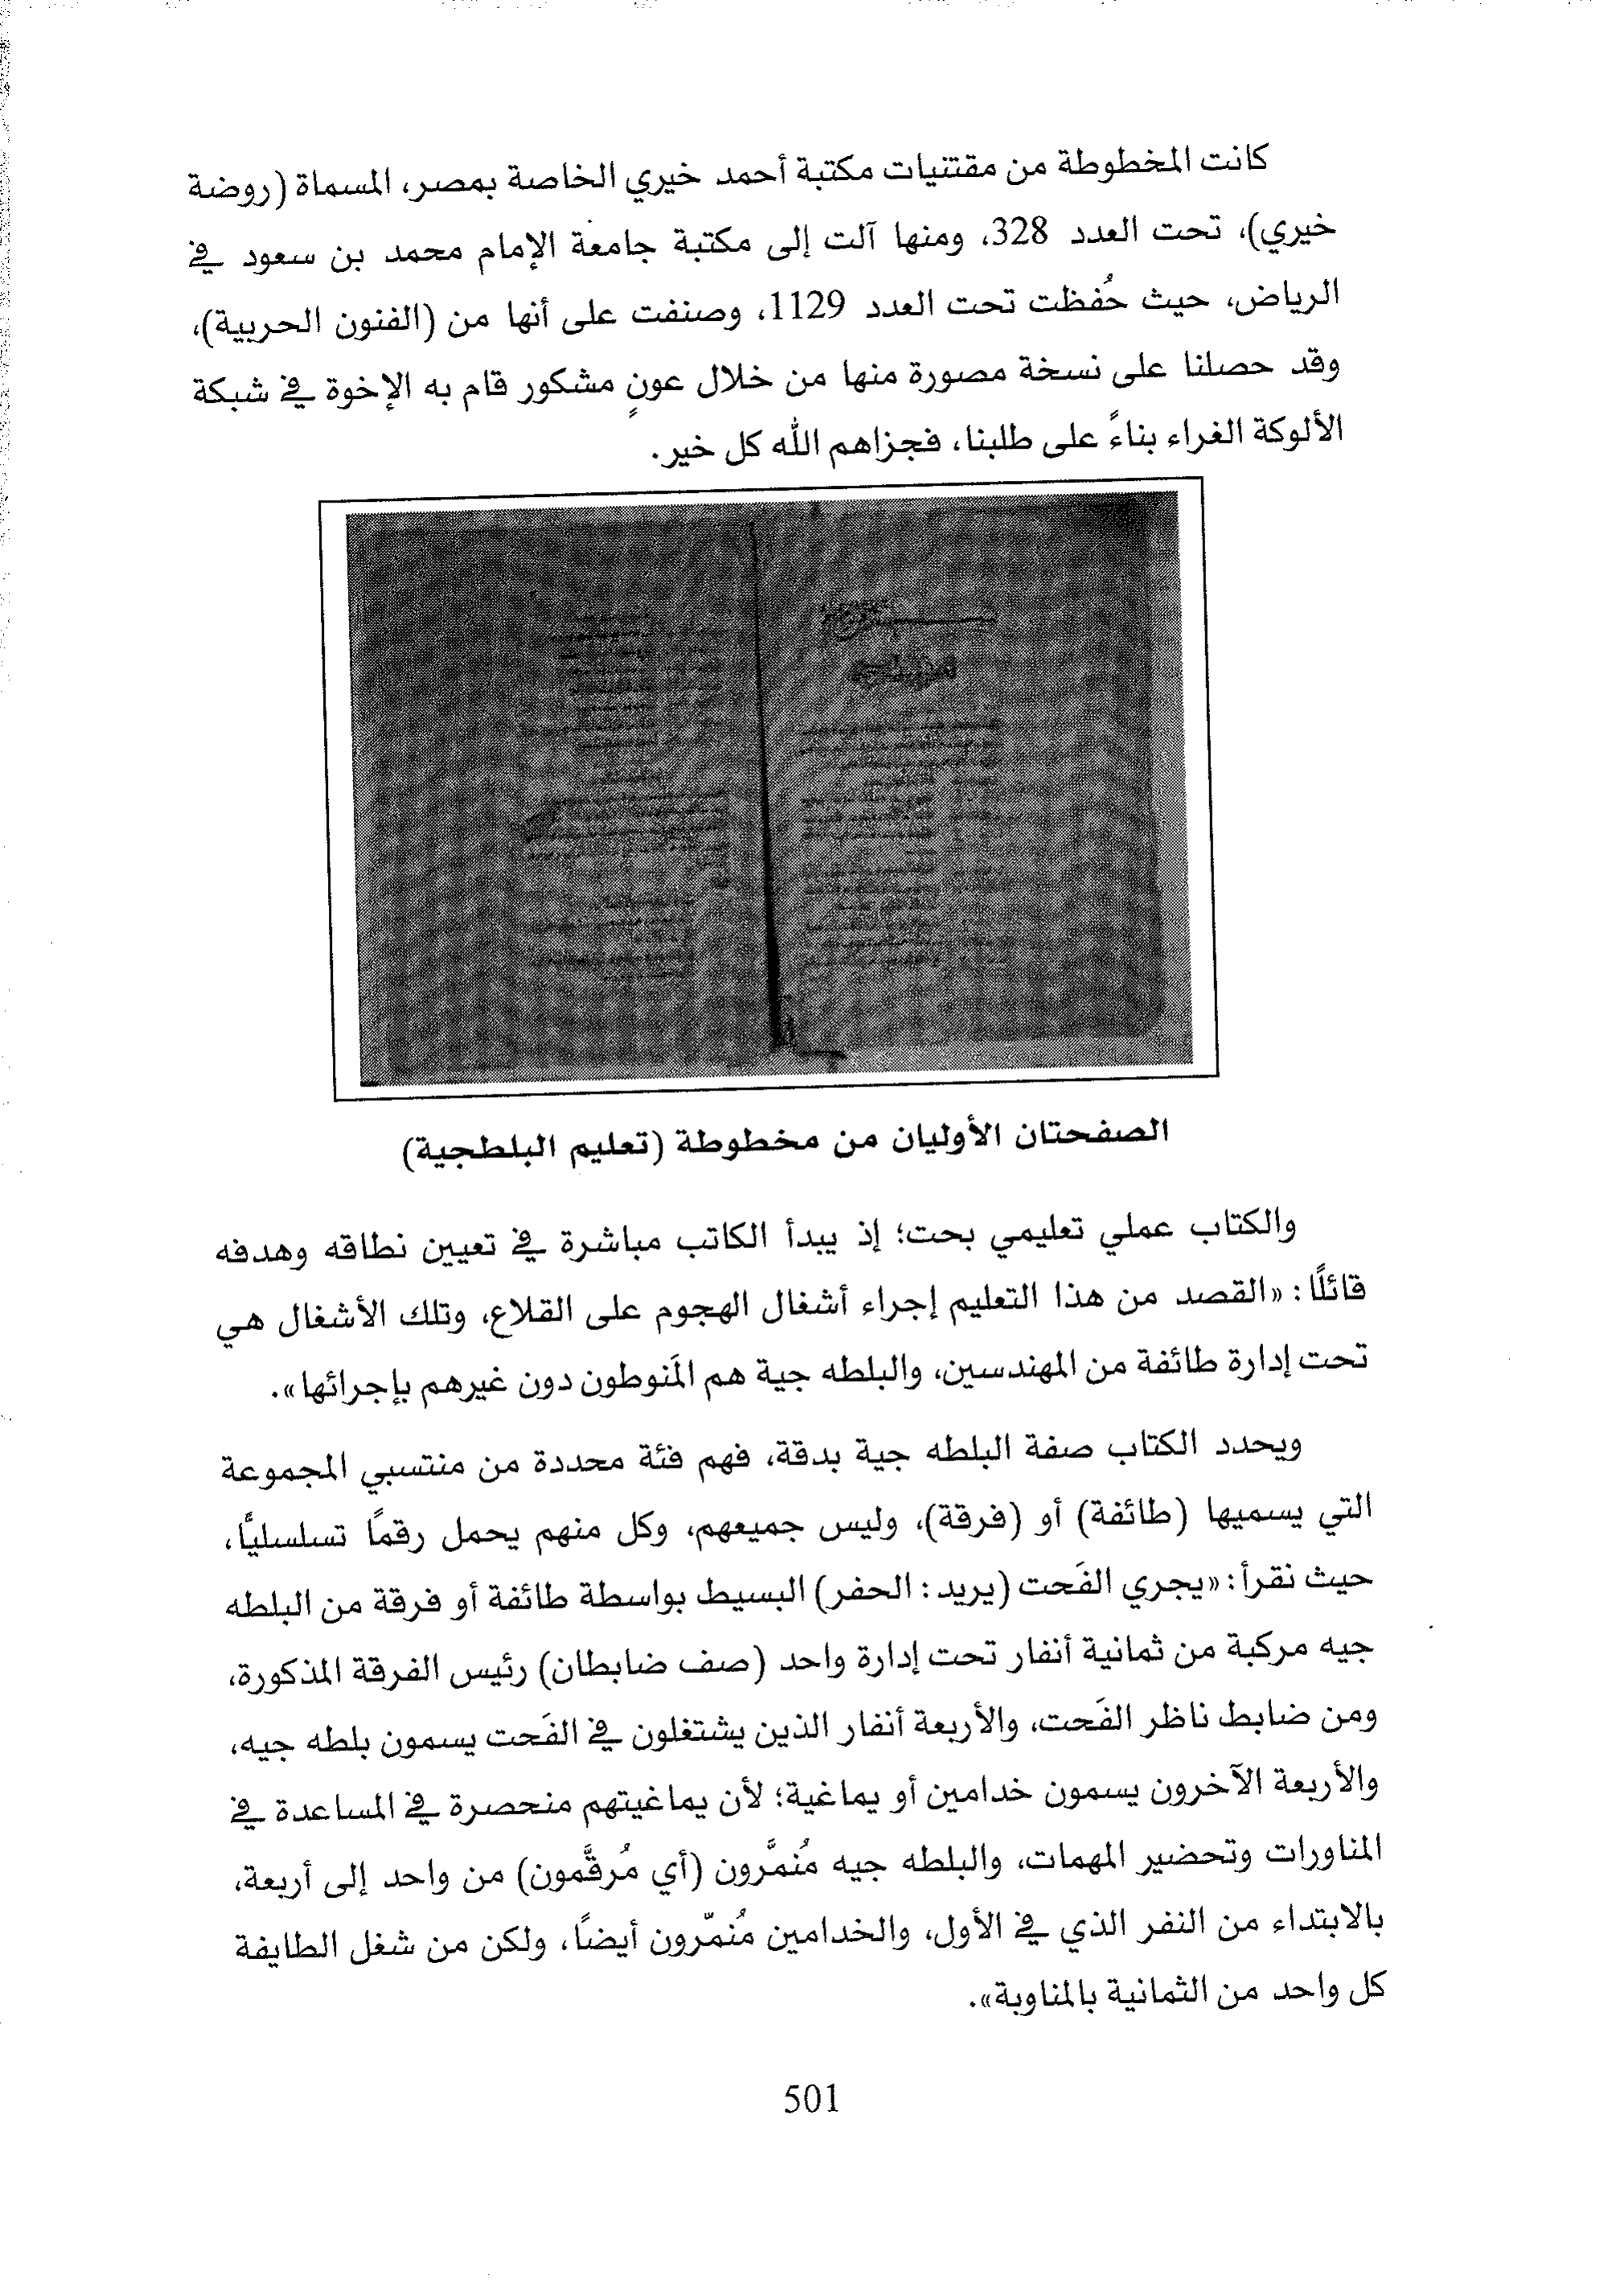 كانت المخطوطة من مقتنيات مكتبة أحمد خيري الخاصة بمصر، المسماة (روضة
خيري)، تحت العدد 328، ومنها آلت إلى مكتبة جامعة الإمام محمد بن سعود في
الرياض، حيث حُفظت تحت العدد 1129، وصنفت على أنها من (الفنون الحربية)،
وقد حصلنا على نسخة مصورة منها من خلال عونٍ مشكور قام به الإخوة في شبكة
الألوكة الغراء بناءً على طلبنا، فجزاهم الله كل خير.
الصفحتان الأوليان من مخطوطة (تعليم البلطجية)
والكتاب عملي تعليمي بحت؛ إذ يبدأ الكاتب مباشرة في تعيين نطاقه وهدفه
قائلًا: «القصد من هذا التعليم إجراء أشغال الهجوم على القلاع، وتلك الأشغال هي
تحت إدارة طائفة من المهندسين، والبلطه جية هم المَنوطون دون غيرهم بإجرائها».
ويحدد الكتاب صفة البلطه جية بدقة، فهم فئة محددة من منتسبي المجموعة
التي يسميها (طائفة) أو (فرقة)، وليس جميعهم، وكل منهم يحمل رقمًا تسلسليًّا،
حيث نقرأ: «يجري الفَحت (يريد: الحفر) البسيط بواسطة طائفة أو فرقة من البلطه
جيه مركبة من ثمانية أنفار تحت إدارة واحد (صف ضابطان) رئيس الفرقة المذكورة،
ومن ضابط ناظر الفَحت، والأربعة أنفار الذين يشتغلون في الفَحت يسمون بلطه جيه،
والأربعة الآخرون يسمون خدامين أو يماغية؛ لأن يماغيتهم منحصرة في المساعدة في
المناورات وتحضير المهمات، والبلطه جيه مُنمَّرون (أي مُرقَّمون) من واحد إلى أربعة،
بالابتداء من النفر الذي في الأول، والخدامين مُنمّرون أيضًا، ولكن من شغل الطايفة
كل واحد من الثمانية بالمناوبة».
501